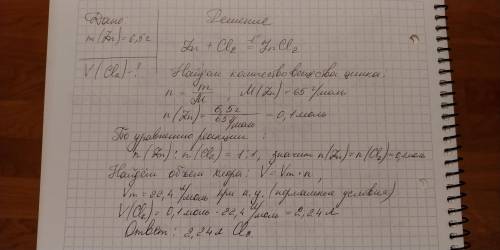 Дано
m(Zn)=6,5г
V(Cl2)-?
Решение
Zn + Cl2 = ZnCl2
Найдем количество вещества цинка:
n = m/M, M(Zn)=65 г/моль
n(Zn)= 6,5г/65г/моль = 0,1 моль
По уравнению реакции:
n(Zn):n(Cl2)=1:1, значит n(Zn)=n(Cl2)=0,1моль
Найдём объем хлора: V=Vm·n,
Vm=22,4 л/моль при н.у. (нормальные условия)
V(Cl2)=0,1моль·22,4 л/моль=2,24л
Ответ: 2,24л Cl2